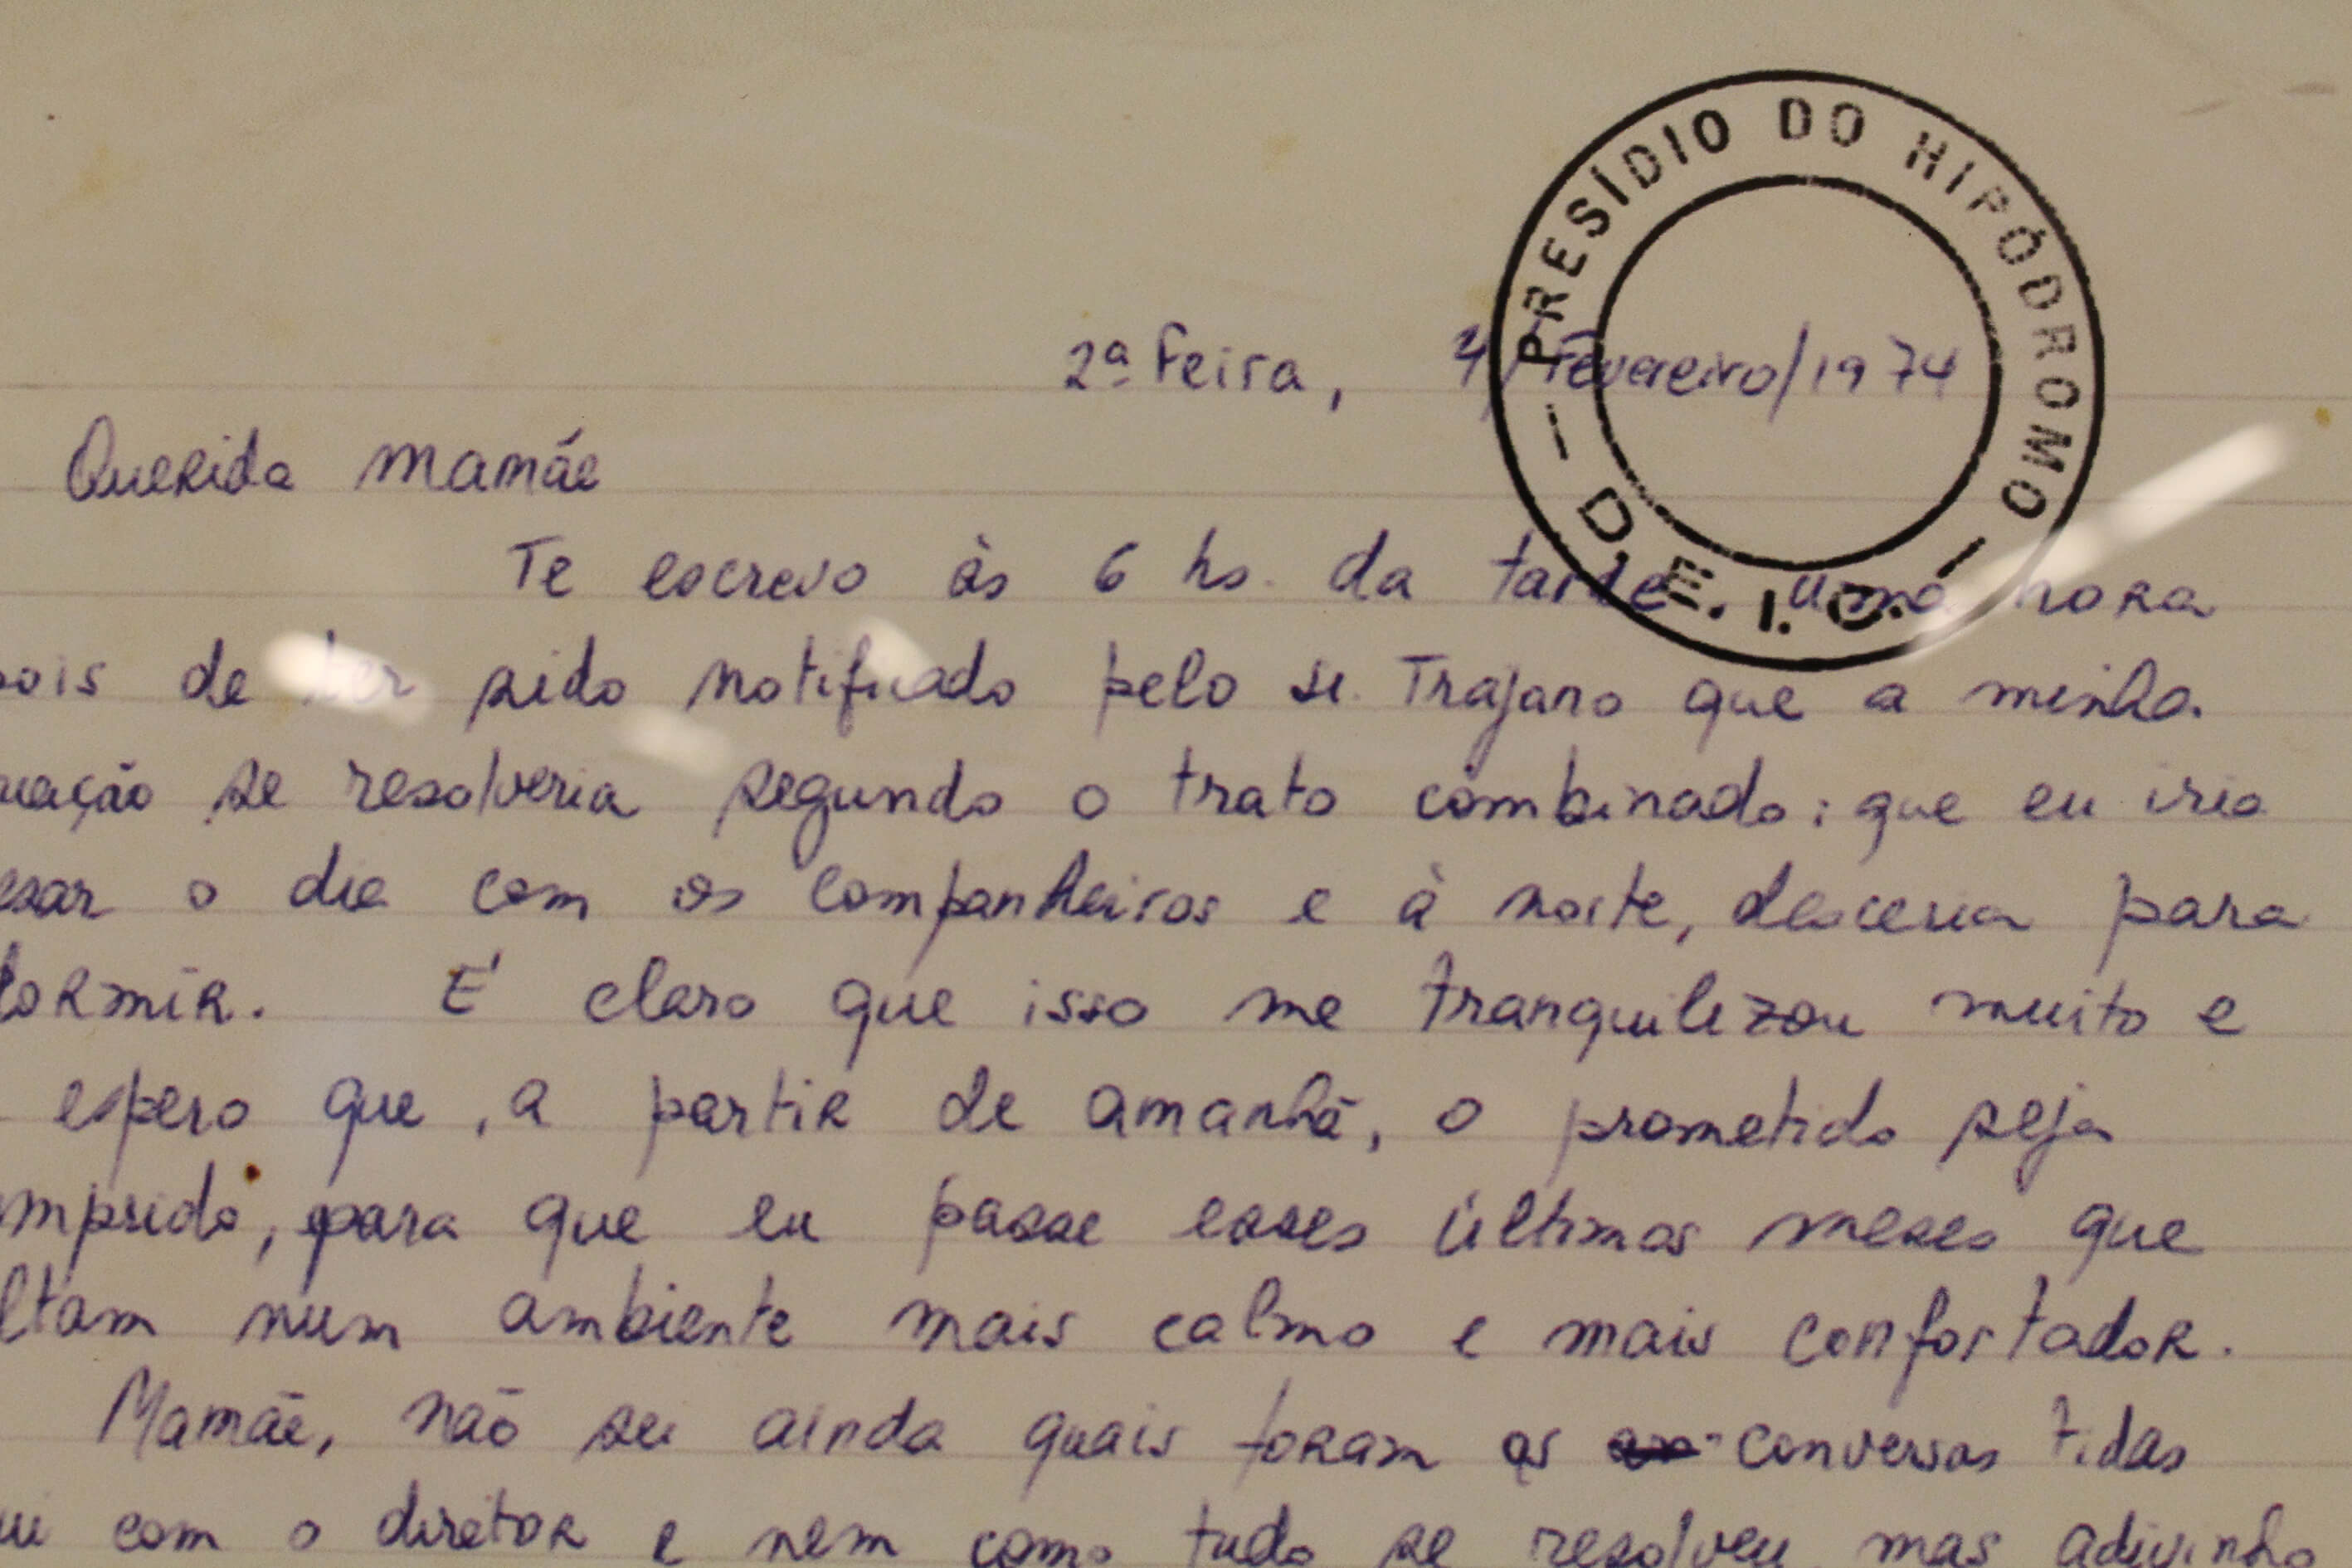 PRESÍDIO DO HIPÓDROMO — D.E.I.C. —
2ª Feira, 4/Fevereiro/1974
Querida mamãe
Te escrevo às 6 hs. da tarde, uma hora
pois de ter sido notificado pelo sr. Trajano que a minha
uação se resolveria segundo o trato combinado: que eu iria
o dia com os companheiros e à noite, desceria para
dormir. É claro que isso me tranquilizou muito e
espero que, a partir de amanhã, o prometido seja
mprido, para que eu passe esses últimos meses que
ltam num ambiente mais calmo e mais confortador.
Mamãe, não sei ainda quais foram as conversas tidas
ui com o diretor e nem como tudo se resolveu, mas adivinho